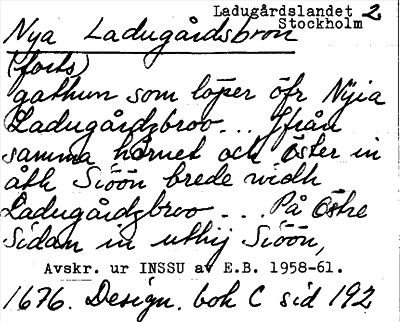 Ladugårdslandet 2
Stockholm
Nya Ladugårdsbron
(forts)
gathun som löper öfr Nÿia
Ladugåidzbroo... Ifrån
samma hörnet och öster in
åth Siöön brede widh
Ladugåidzbroo .... På östre
Sidan in uthij Siöön,
Avskr. ur INSSU av E.B. 1958-61.
1676. Design. bok C sid 192